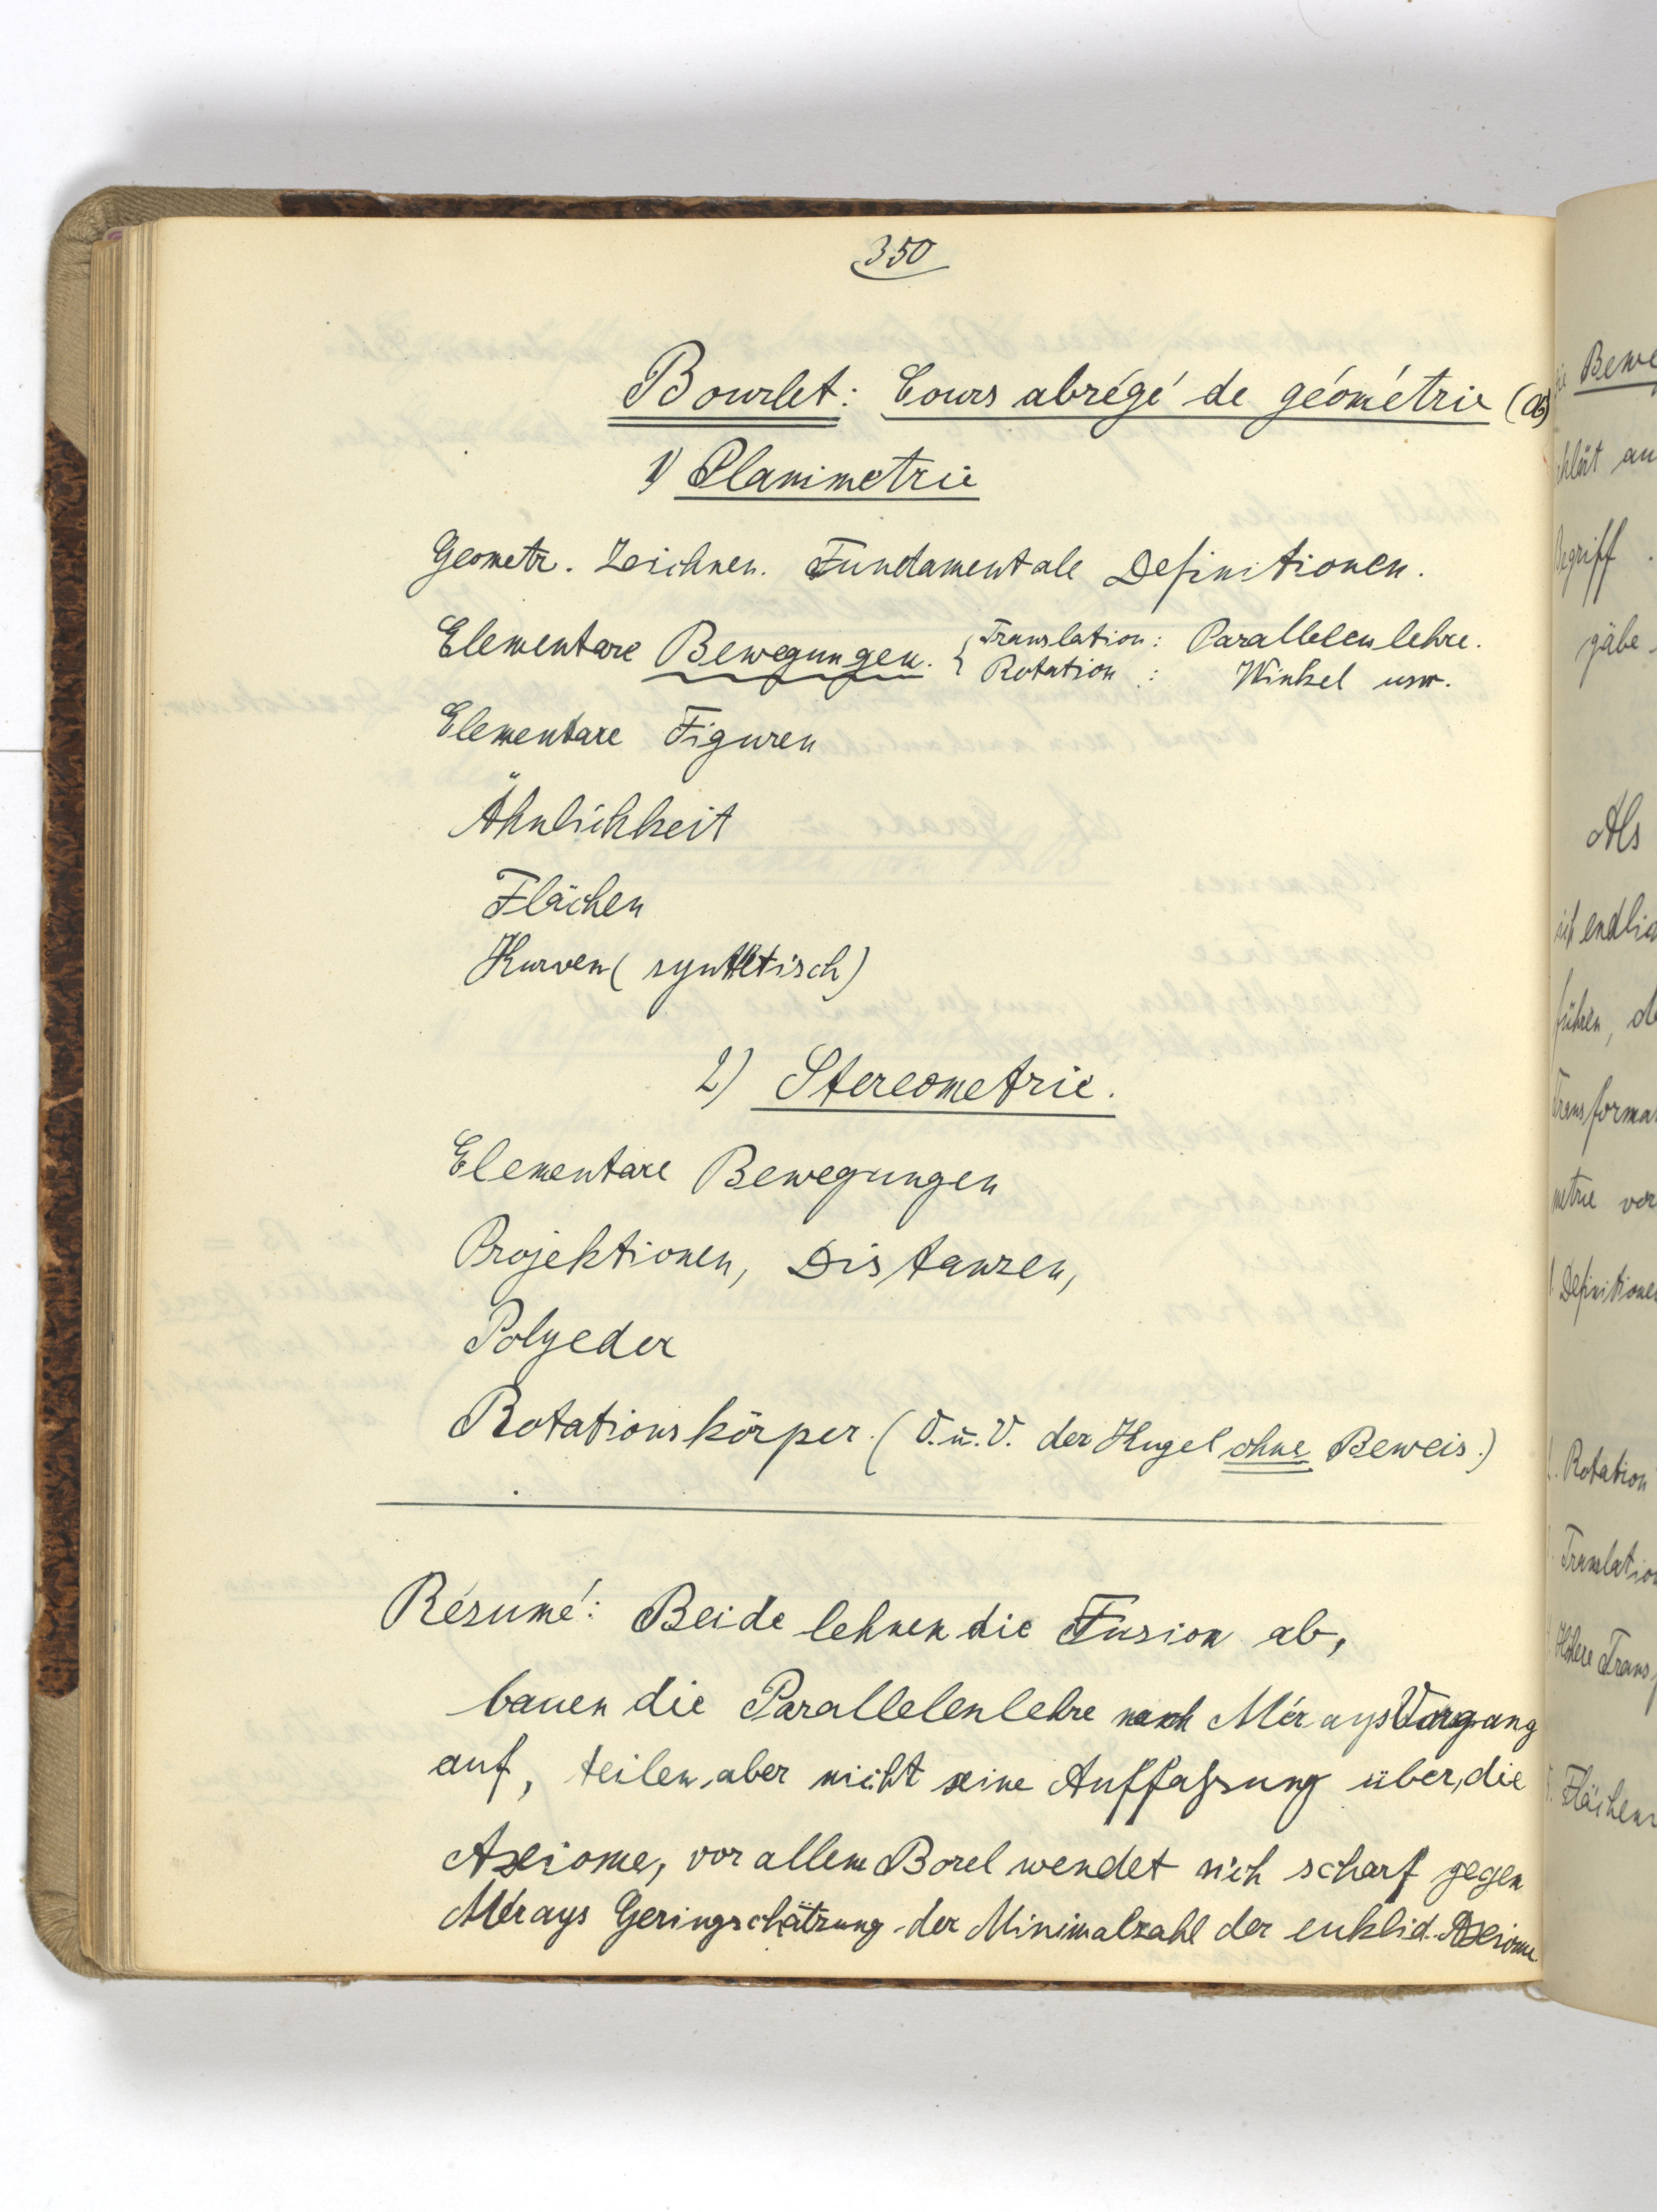 350
Bourlet: Cours abrégé de géométrie
1) Planimetrie
Geometr. Zeichnen. Fundamentale Definitionen.
Elementare Bewegungen. { Translation: Parallelenlehre.
Rotation : Winkel usw.
Elementare Figuren
Ähnlichkeit
Flächen
Kurven (synthetisch)
2) Stereometrie.
Elementare Bewegungen
Projektionen, Distanzen,
Polyeder
Rotationskörper. (O. u. V. der Kugel ohne Beweis.)
Résumé: Beide lehnen die Fusion ab,
bauen die Parallelenlehre nach Mérays Vorgang
auf, teilen aber nicht seine Auffassung über die
Axiome, vor allem Borel wendet sich scharf gegen
Mérays Geringschätzung der Minimalzahl der euklid. Axiome
Bewe
klärt
Begriff.
gäbe
Als
ist endlich
führen,
Transforma
metrie vor
Definitione
Rotation
Translation
Höhere Trans
Flächen